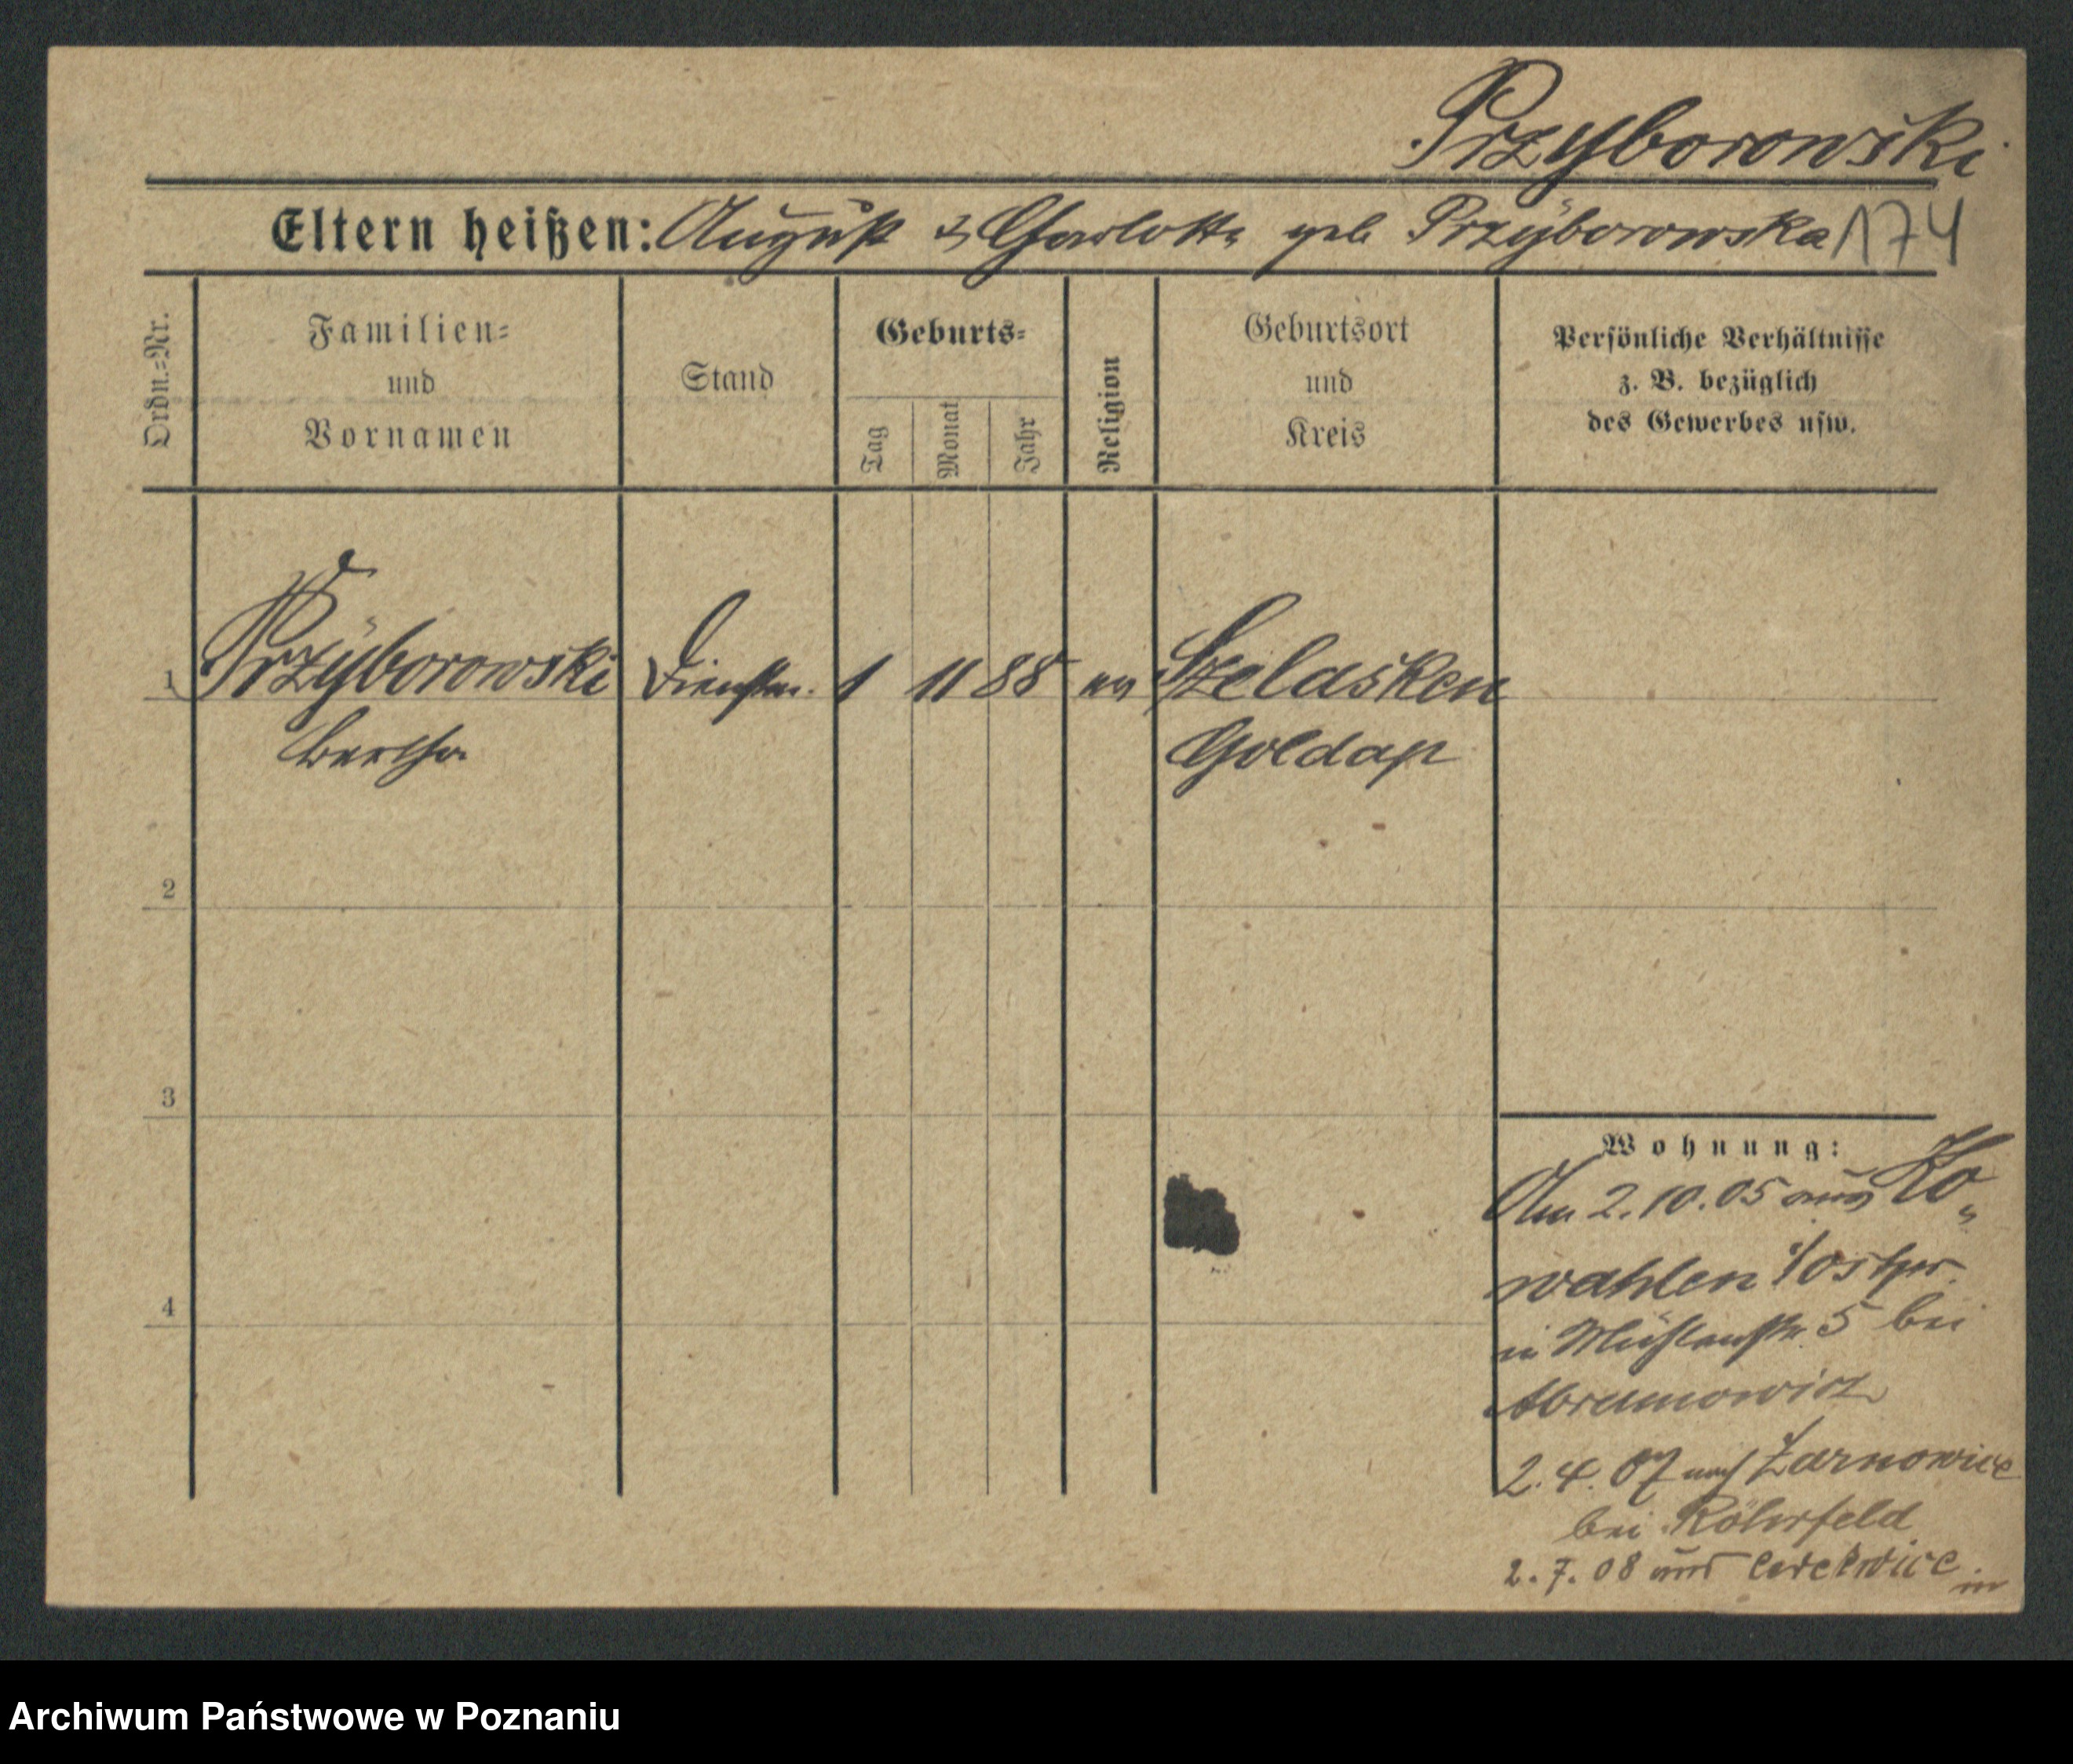 Przyborowski
Eltern heißen: August & Charlotte geb Przyborowska 174
Ordn.=Nr.
Familien=
und
Vornamen
Stand
Geburts=
Tag
Monat
Jahr
Religion
Geburtsort
und
Kreis
Persönliche Verhältnisse
z. B. bezüglich
des Gewerbes usw.
1 Przyborowski Dienstm. 1 11 88 ev Szelasken
Bertha Goldap
2
3
4
Wohnung:
Am 2.10.05 aus Ko„
wahlen i/Ostpr.
in Mühlenstr. 5 bei
Abramowicz
2.4.07 nach Zarnowice
bei Röhrfeld
2.7.08 aus Cerekwice in
Archiwum Państwowe w Poznaniu